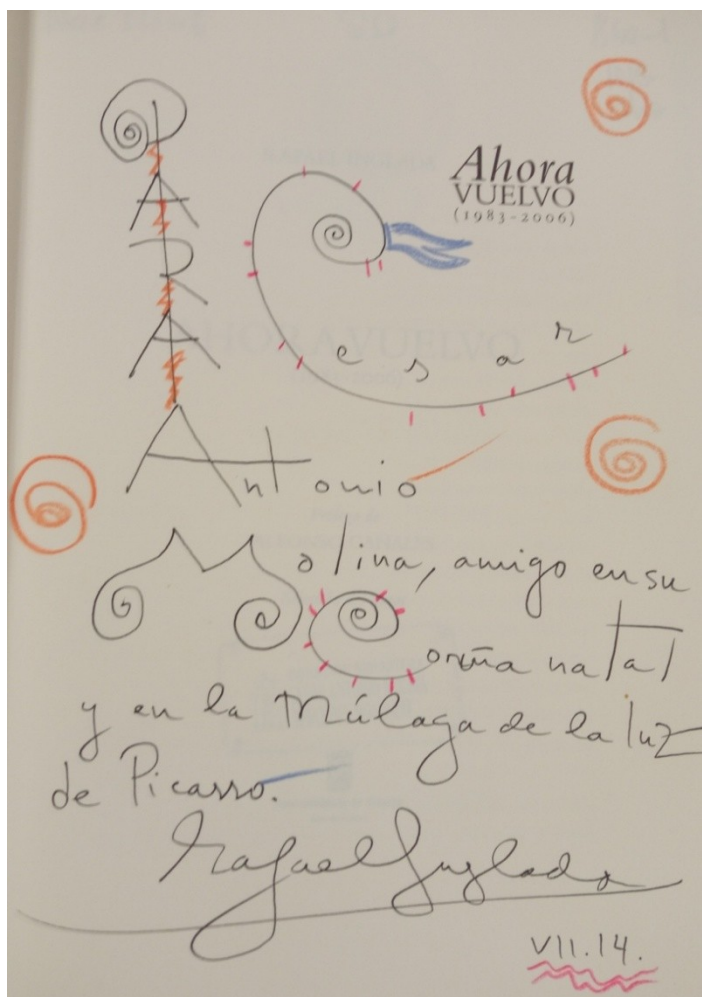 PARA
Ahora
VUELVO
(1983-2006)
Cesar
Antonio
Molina, amigo en su
Coruña natal
y en la Málaga de la luz
de Picasso.
Rafael Inglada
VII.14.